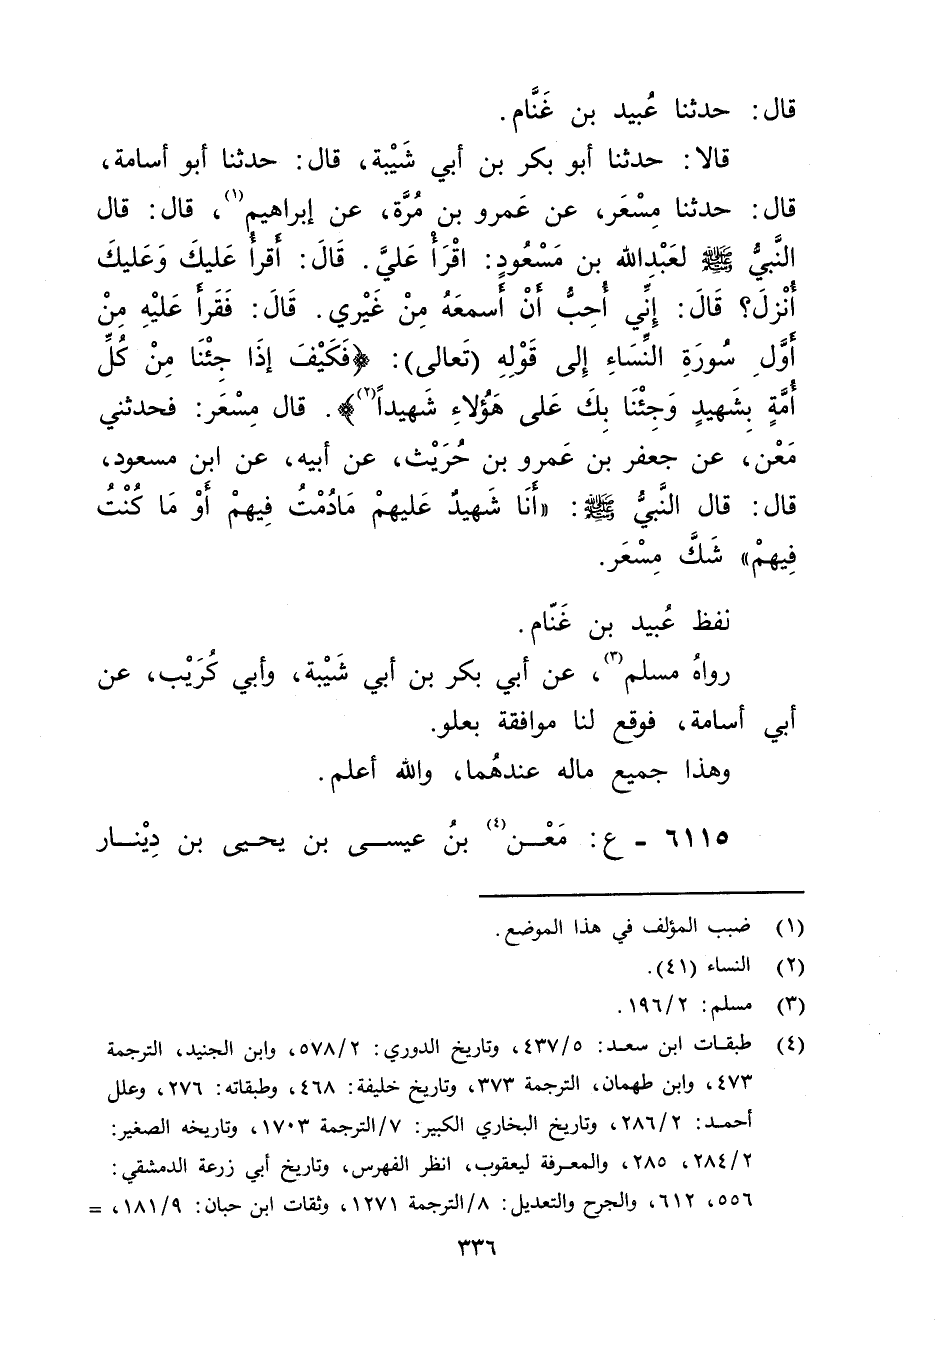 قال: حدثنا عُبيد بن غَنَّام.
قالا: حدثنا أبو بكر بن أبي شَيْبة، قال: حدثنا أبو أسامة،
قال: حدثنا مِسْعَر، عن عَمرو بن مُرَّة، عن إبراهيم(١)، قال: قال
النَّبيُّ ﷺ لعَبْدِالله بن مَسْعُودٍ: اقْرَأْ عَليَّ. قَالَ: أَقرأُ عَليكَ وَعَليكَ
أُنْزلَ؟ قَالَ: إِنِّي أُحِبُّ أَنْ أَسمعَهُ مِنْ غَيْري. قَالَ: فَقَرأَ عَليْهِ مِنْ
أَوَّلِ سُورَةِ النِّسَاءِ إِلى قَوْلِهِ (تَعالى): ﴿فَكَيْفَ إذَا جِئْنَا مِنْ كُلِّ
أُمَّةٍ بِشَهيدٍ وَجِئْنَا بِكَ عَلى هَؤُلاءِ شَهيداً(٢)﴾. قال مِسْعَر: فحدثني
مَعْن، عن جعفر بن عَمرو بن حُرَيْث، عن أبيه، عن ابن مسعود،
قال: قال النَّبيُّ ﷺ: «أَنَا شَهيدٌ عَليهمْ مَادُمْتُ فِيهمْ أَوْ مَا كُنْتُ
فِيهمْ» شَكَّ مِسْعَر.
نفظ عُبيد بن غَنّام.
رواهُ مسلم(٣)، عن أبي بكر بن أبي شَيْبة، وأبي كُرَيْب، عن
أبي أسامة، فوقع لنا موافقة بعلو.
وهذا جميع ماله عندهُما، والله أعلم.
٦١١٥ - ع: مَعْـن(٤) بنُ عيسـى بن يحيـى بن دِيْنـار
(١) ضبب المؤلف في هذا الموضع.
(٢) النساء (٤١).
(٣) مسلم: ١٩٦/٢.
(٤) طبقـات ابن سعـد: ٤٣٧/٥، وتاريخ الدوري: ٥٧٨/٢، وابن الجنيد، الترجمة
٤٧٣، وابن طهمان، الترجمة ٣٧٣، وتاريخ خليفة: ٤٦٨، وطبقاته: ٢٧٦، وعلل
أحمـد: ٢٨٦/٢، وتاريخ البخاري الكبير: ٧/الترجمة ١٧٠٣، وتاريخه الصغير:
٢٨٤/٢، ٢٨٥، والمعـرفة ليعقوب، انظر الفهرس، وتاريخ أبي زرعة الدمشقي:
٥٥٦، ٦١٢، والجرح والتعديل: ٨/الترجمة ١٢٧١، وثقات ابن حبان: ١٨١/٩، =
٣٣٦